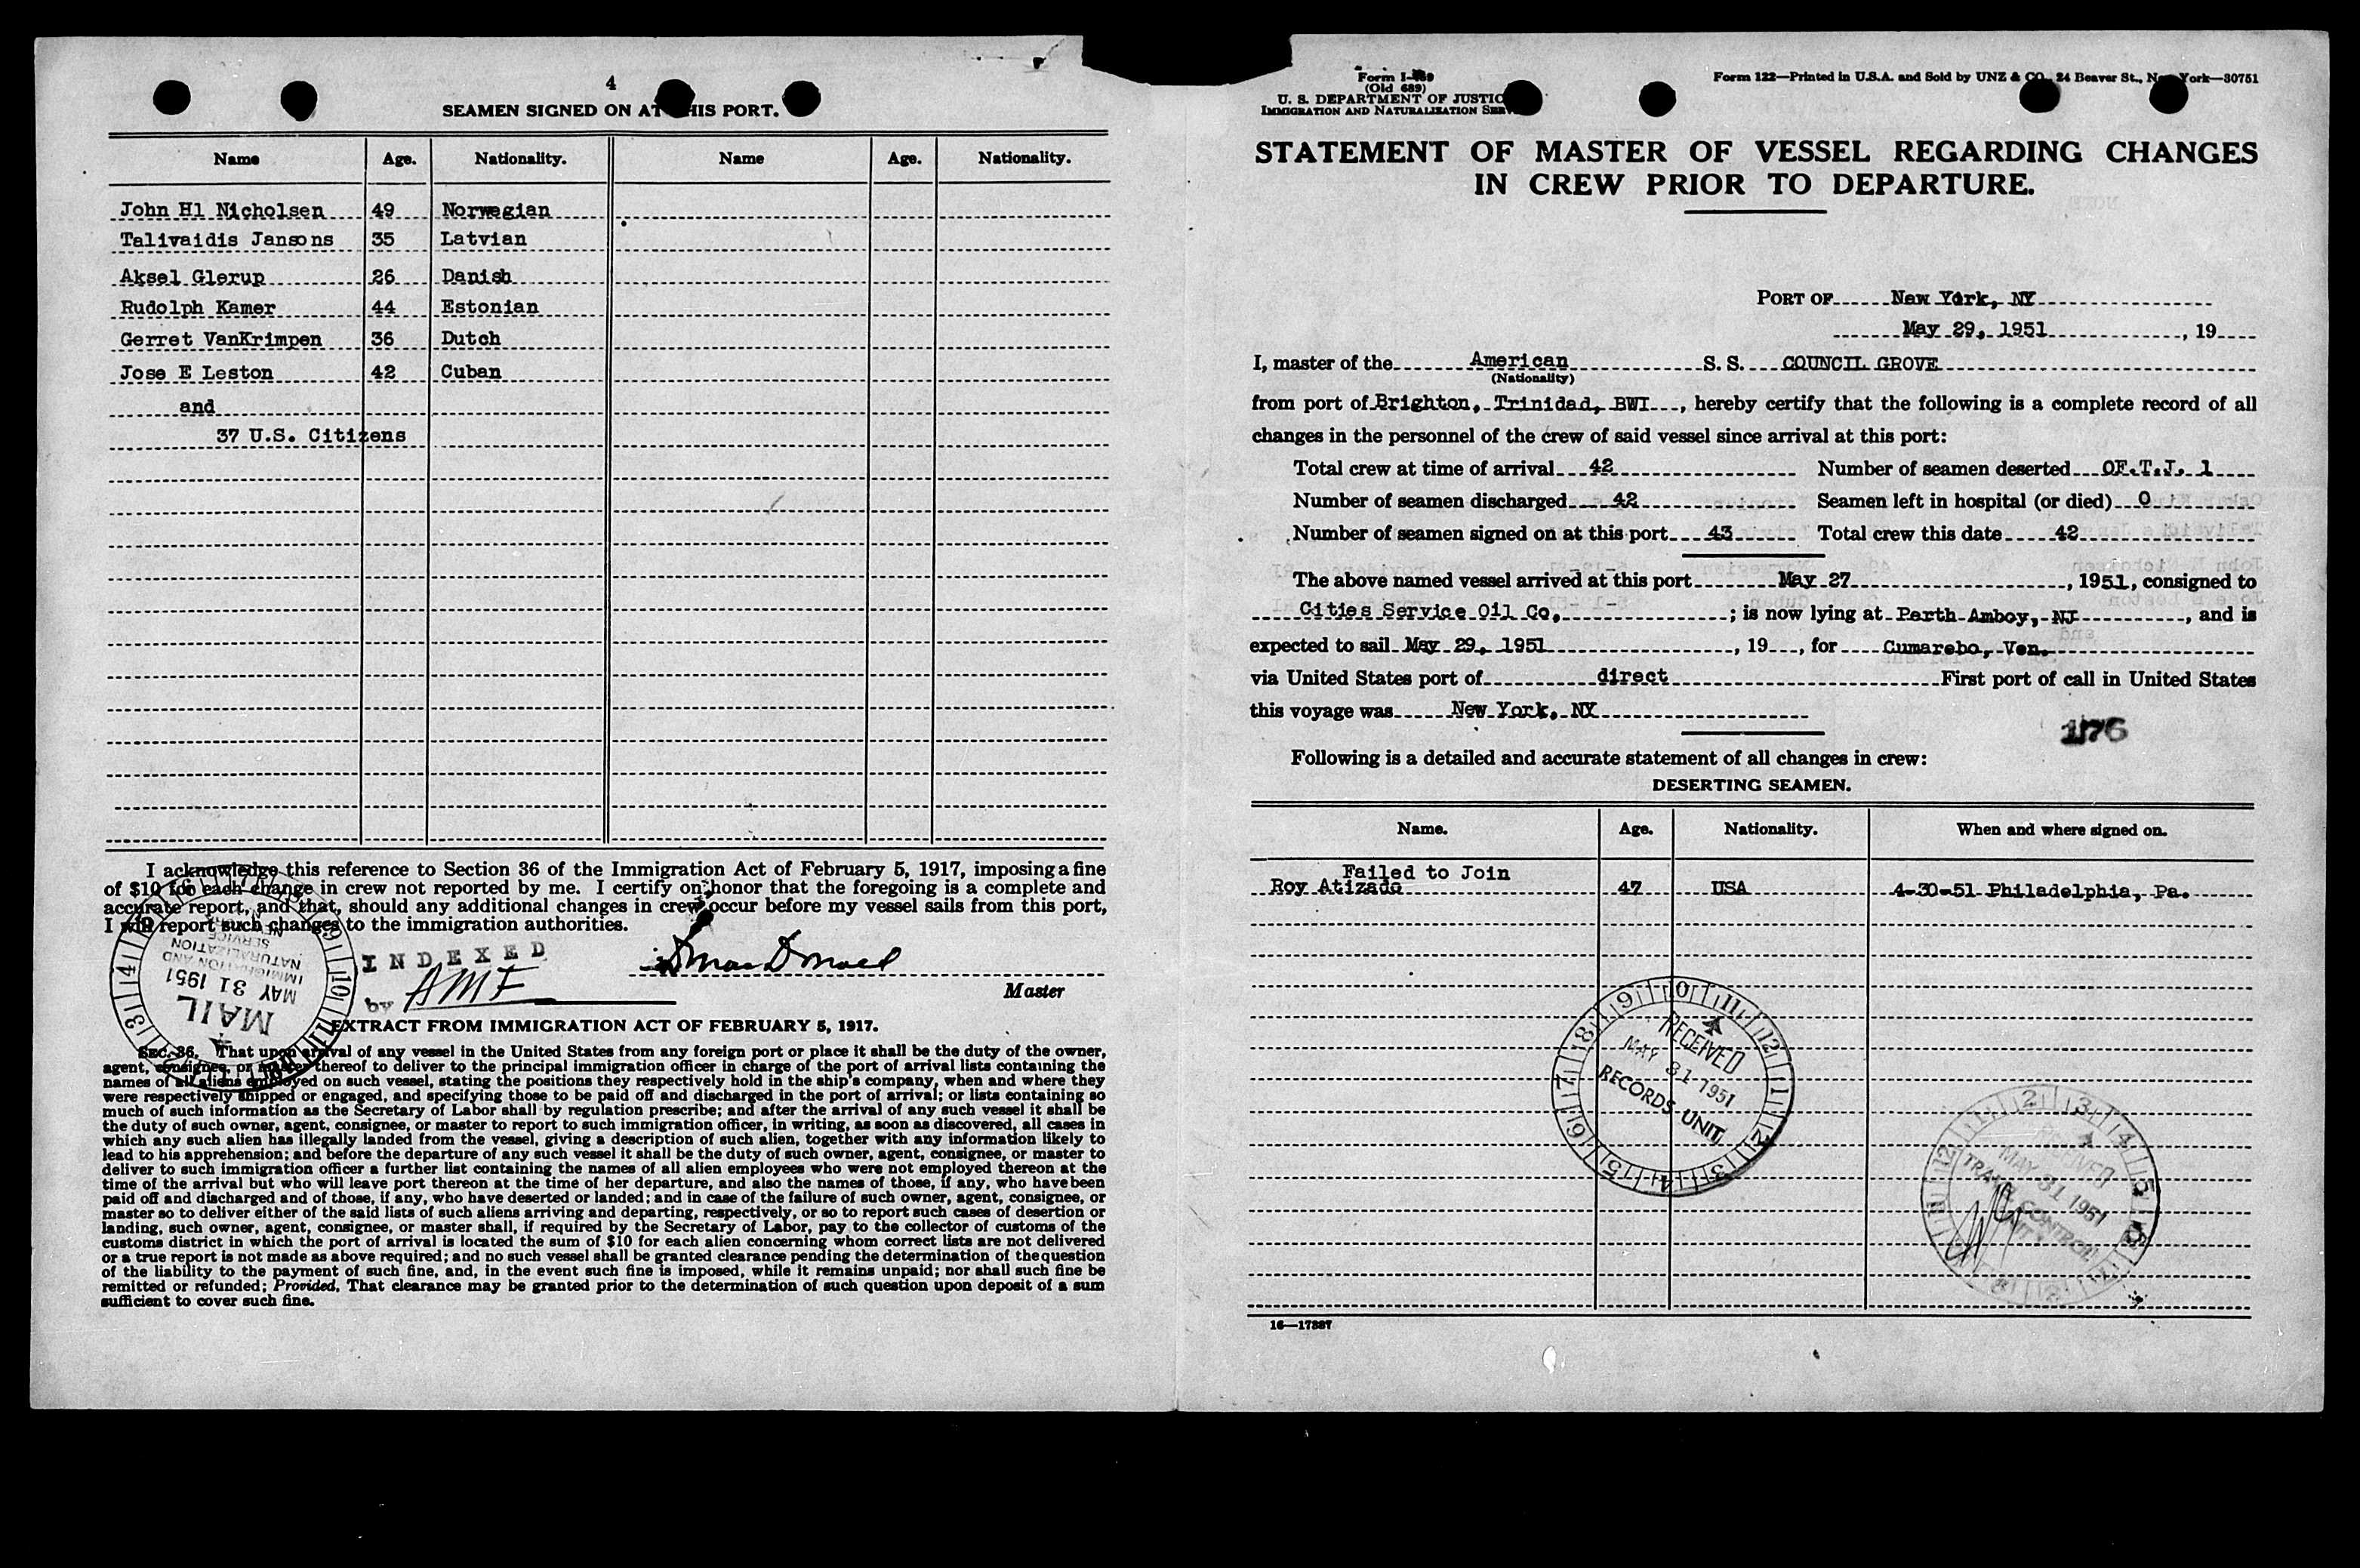 4
SEAMEN SIGNED ON AT THIS PORT.
Name Age. Nationality. Name Age. Nationality.
John Hl Nicholsen 49 Norwegian
Talivaidis Jansons 35 Latvian
Aksel Glerup 26 Danish
Rudolph Kamer 44 Estonian
Gerret VanKrimpen 36 Dutch
Jose E Leston 42 Cuban
and
37 U.S. Citizens
I acknowledge this reference to Section 36 of the Immigration Act of February 5, 1917, imposing a fine
of $10 for each change in crew not reported by me. I certify on honor that the foregoing is a complete and
accurate report, and that, should any additional changes in crew occur before my vessel sails from this port,
I will report such changes to the immigration authorities.
INDEXED
by AMF
Master
MAIL
MAY 31 1951
IMMIGRATION AND
NATURALIZATION
SERVICE
EXTRACT FROM IMMIGRATION ACT OF FEBRUARY 5, 1917.
SEC. 36. That upon arrival of any vessel in the United States from any foreign port or place it shall be the duty of the owner,
agent, consignee, or master thereof to deliver to the principal immigration officer in charge of the port of arrival lists containing the
names of all aliens employed on such vessel, stating the positions they respectively hold in the ship's company, when and where they
were respectively shipped or engaged, and specifying those to be paid off and discharged in the port of arrival; or lists containing so
much of such information as the Secretary of Labor shall by regulation prescribe; and after the arrival of any such vessel it shall be
the duty of such owner, agent, consignee, or master to report to such immigration officer, in writing, as soon as discovered, all cases in
which any such alien has illegally landed from the vessel, giving a description of such alien, together with any information likely to
lead to his apprehension; and before the departure of any such vessel it shall be the duty of such owner, agent, consignee, or master to
deliver to such immigration officer a further list containing the names of all alien employees who were not employed thereon at the
time of the arrival but who will leave port thereon at the time of her departure, and also the names of those, if any, who have been
paid off and discharged and of those, if any, who have deserted or landed; and in case of the failure of such owner, agent, consignee, or
master so to deliver either of the said lists of such aliens arriving and departing, respectively, or so to report such cases of desertion or
landing, such owner, agent, consignee, or master shall, if required by the Secretary of Labor, pay to the collector of customs of the
customs district in which the port of arrival is located the sum of $10 for each alien concerning whom correct lists are not delivered
or a true report is not made as above required; and no such vessel shall be granted clearance pending the determination of the question
of the liability to the payment of such fine, and, in the event such fine is imposed, while it remains unpaid; nor shall such fine be
remitted or refunded; Provided, That clearance may be granted prior to the determination of such question upon deposit of a sum
sufficient to cover such fine.
Form I-489
(Old 689)
U. S. DEPARTMENT OF JUSTICE
IMMIGRATION AND NATURALIZATION SERVICE
Form 122—Printed in U.S.A. and Sold by UNZ & CO., 24 Beaver St., New York—30751
STATEMENT OF MASTER OF VESSEL REGARDING CHANGES
IN CREW PRIOR TO DEPARTURE.
PORT OF New York, NY
May 29, 1951, 19
I, master of the American S. S. COUNCIL GROVE
(Nationality)
from port of Brighton, Trinidad, BWI, hereby certify that the following is a complete record of all
changes in the personnel of the crew of said vessel since arrival at this port:
Total crew at time of arrival 42 Number of seamen deserted OF.T.J. 1
Number of seamen discharged 42 Seamen left in hospital (or died) 0
Number of seamen signed on at this port 43 Total crew this date 42
The above named vessel arrived at this port May 27, 1951, consigned to
Cities Service Oil Co,; is now lying at Perth Amboy, NJ, and is
expected to sail May 29, 1951, 19, for Cumarebo, Ven.
via United States port of direct First port of call in United States
this voyage was New York, NY
1176
Following is a detailed and accurate statement of all changes in crew:
DESERTING SEAMEN.
Name. Age. Nationality. When and where signed on.
Failed to Join
Roy Atizado 47 USA 4-30-51 Philadelphia, Pa.
RECEIVED
MAY 31 1951
RECORDS UNIT
RECEIVED
MAY 31 1951
CONTROL
UNIT
16—17887